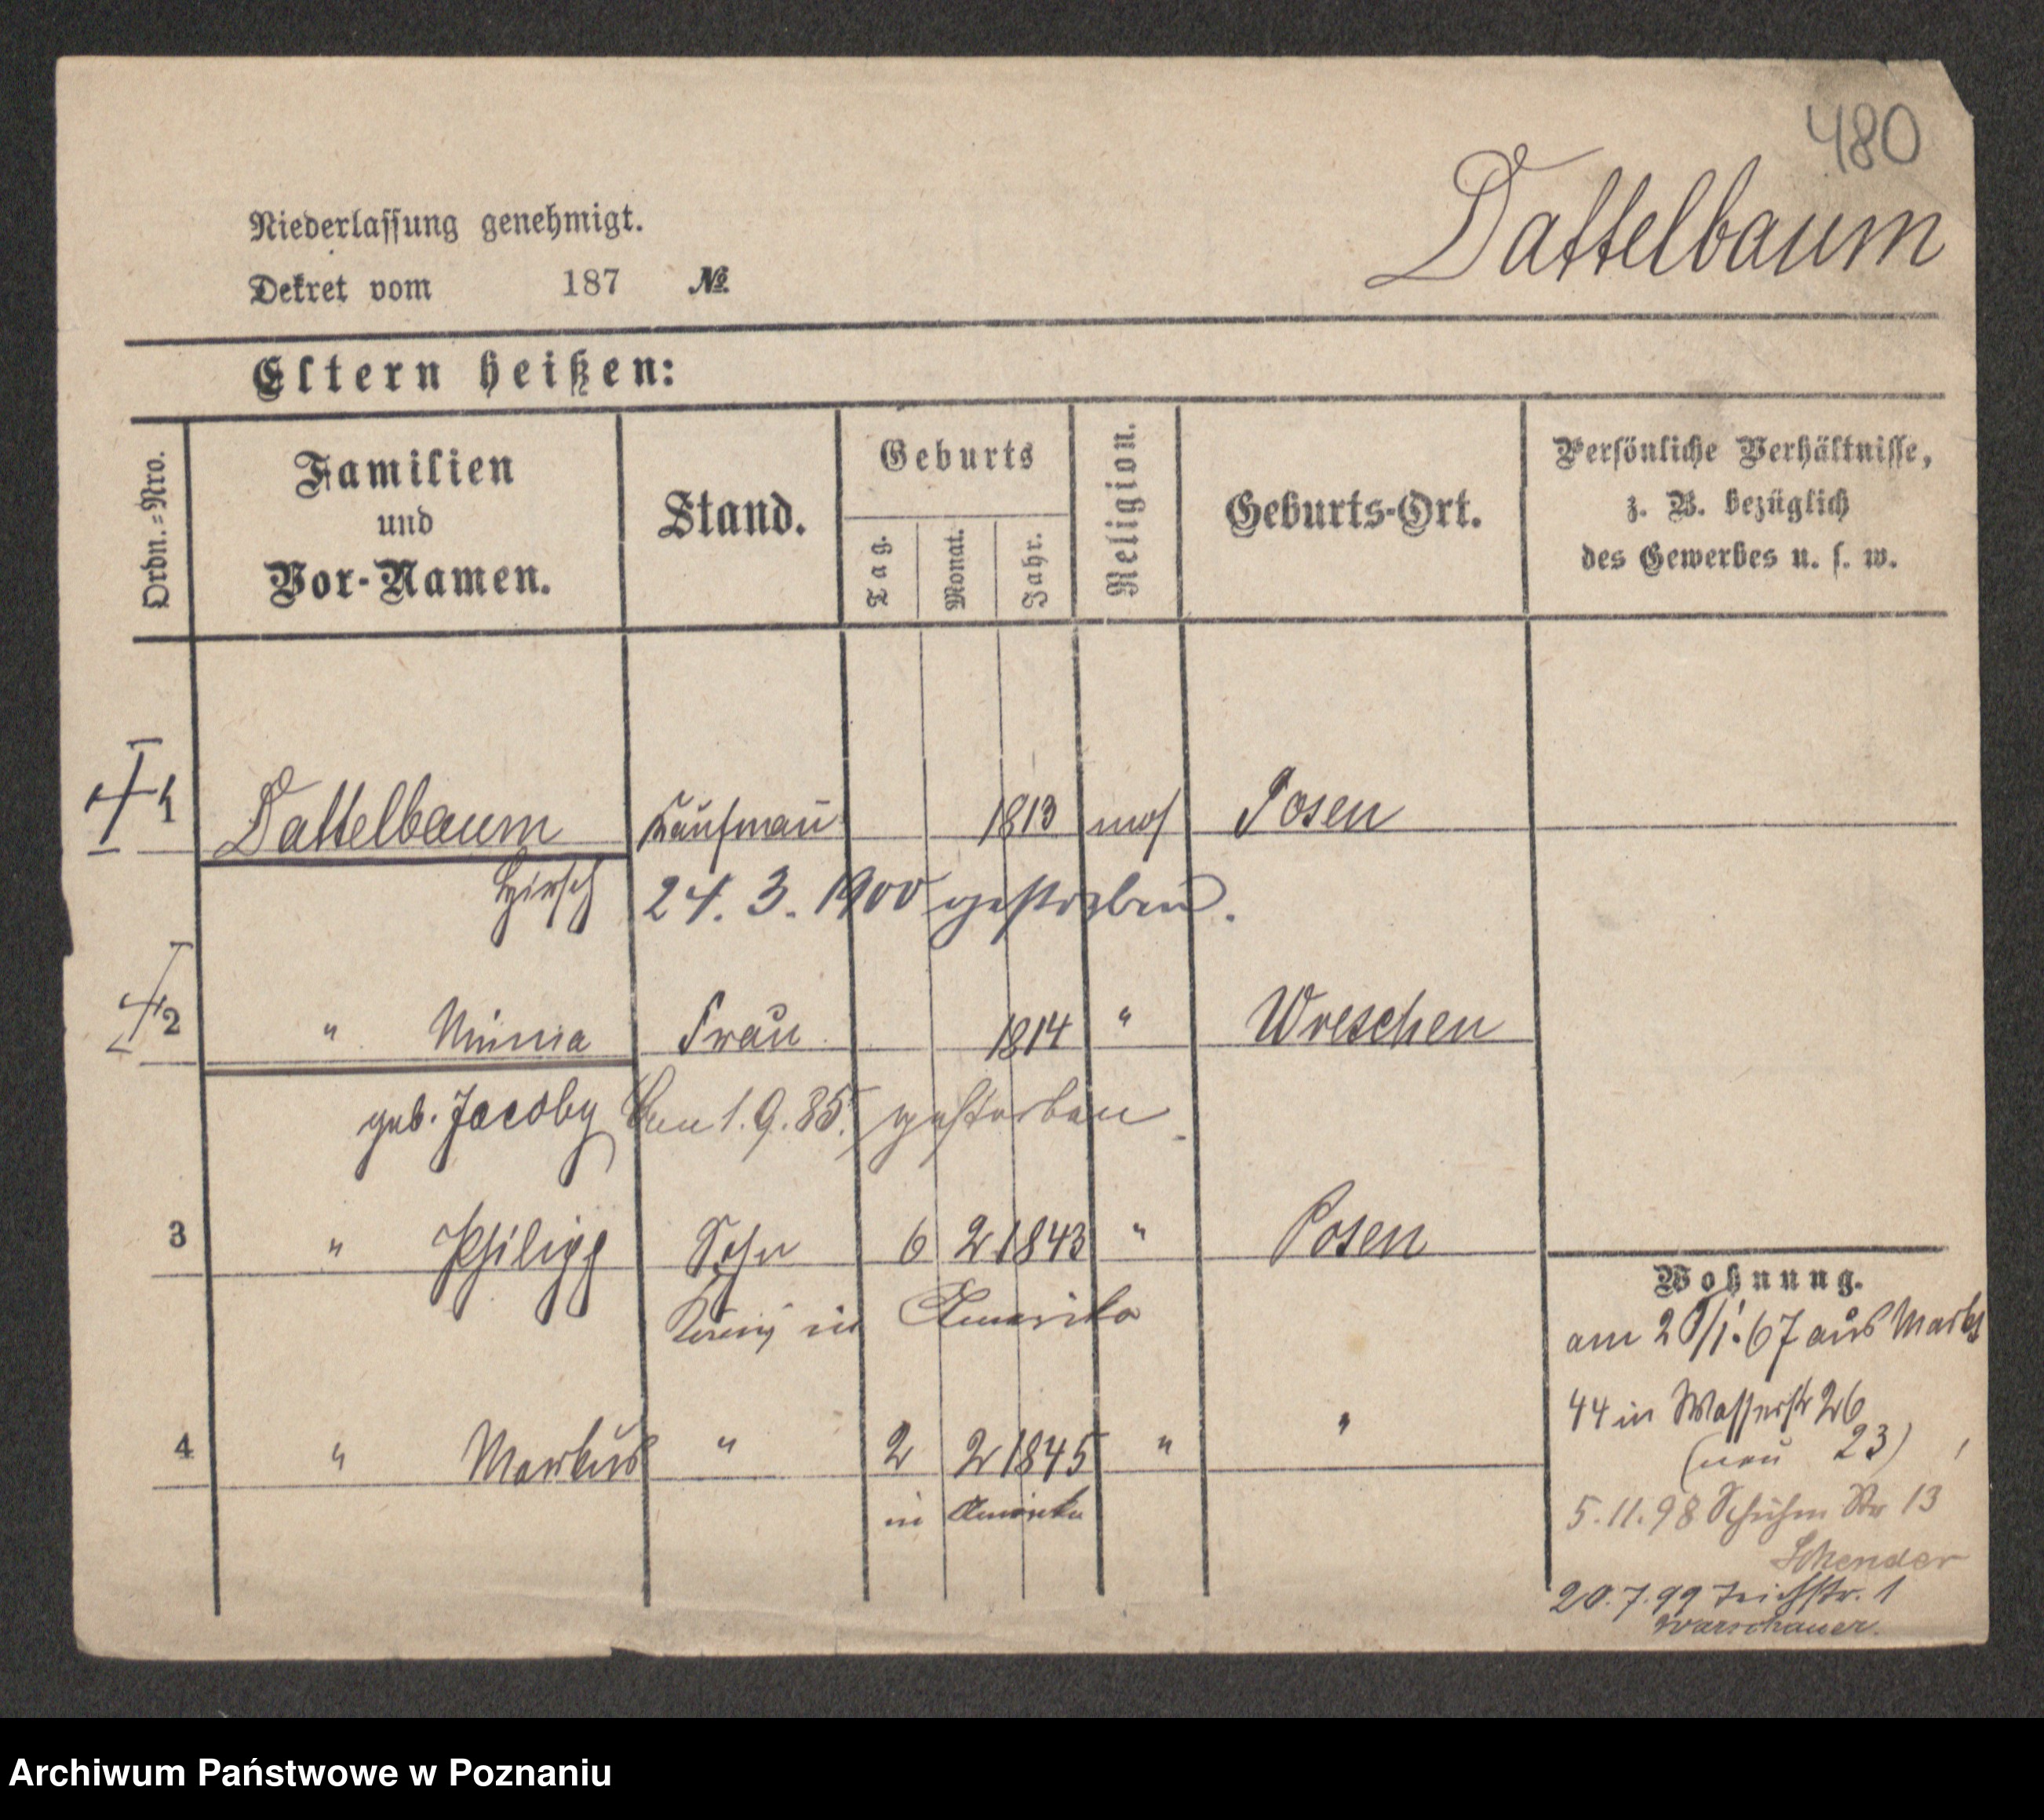 480
Dattelbaum
Niederlassung genehmigt.
Dekret vom 187 №
Eltern heißen:
Ordn.=Nro.
Familien und Vor-Namen.
Stand.
Geburts
Tag. Monat. Jahr.
Religion.
Geburts-Ort.
Persönliche Verhältnisse,
z. B. bezüglich
des Gewerbes u. s. w.
1 Dattelbaum Kaufmañ 1813 mos Posen
Hirsch 24. 3. 1900 gestorben.
2 " Minna Frau 1814 " Wreschen
geb. Jacoby Den 1. 9. 85. gestorben.
3 " Philipp Sohn 6 2 1843 " Posen
in Amerika
4 " Markus " 2 2 1845 " "
in Amerika
Wohnung.
am 20/1. 67 aus Markt
44 in Wasserstr 26
(neu 23)
5. 11. 98 Schuhm Str 13
20. 7. 99 Teichstr. 1
Warschauer.
Archiwum Państwowe w Poznaniu